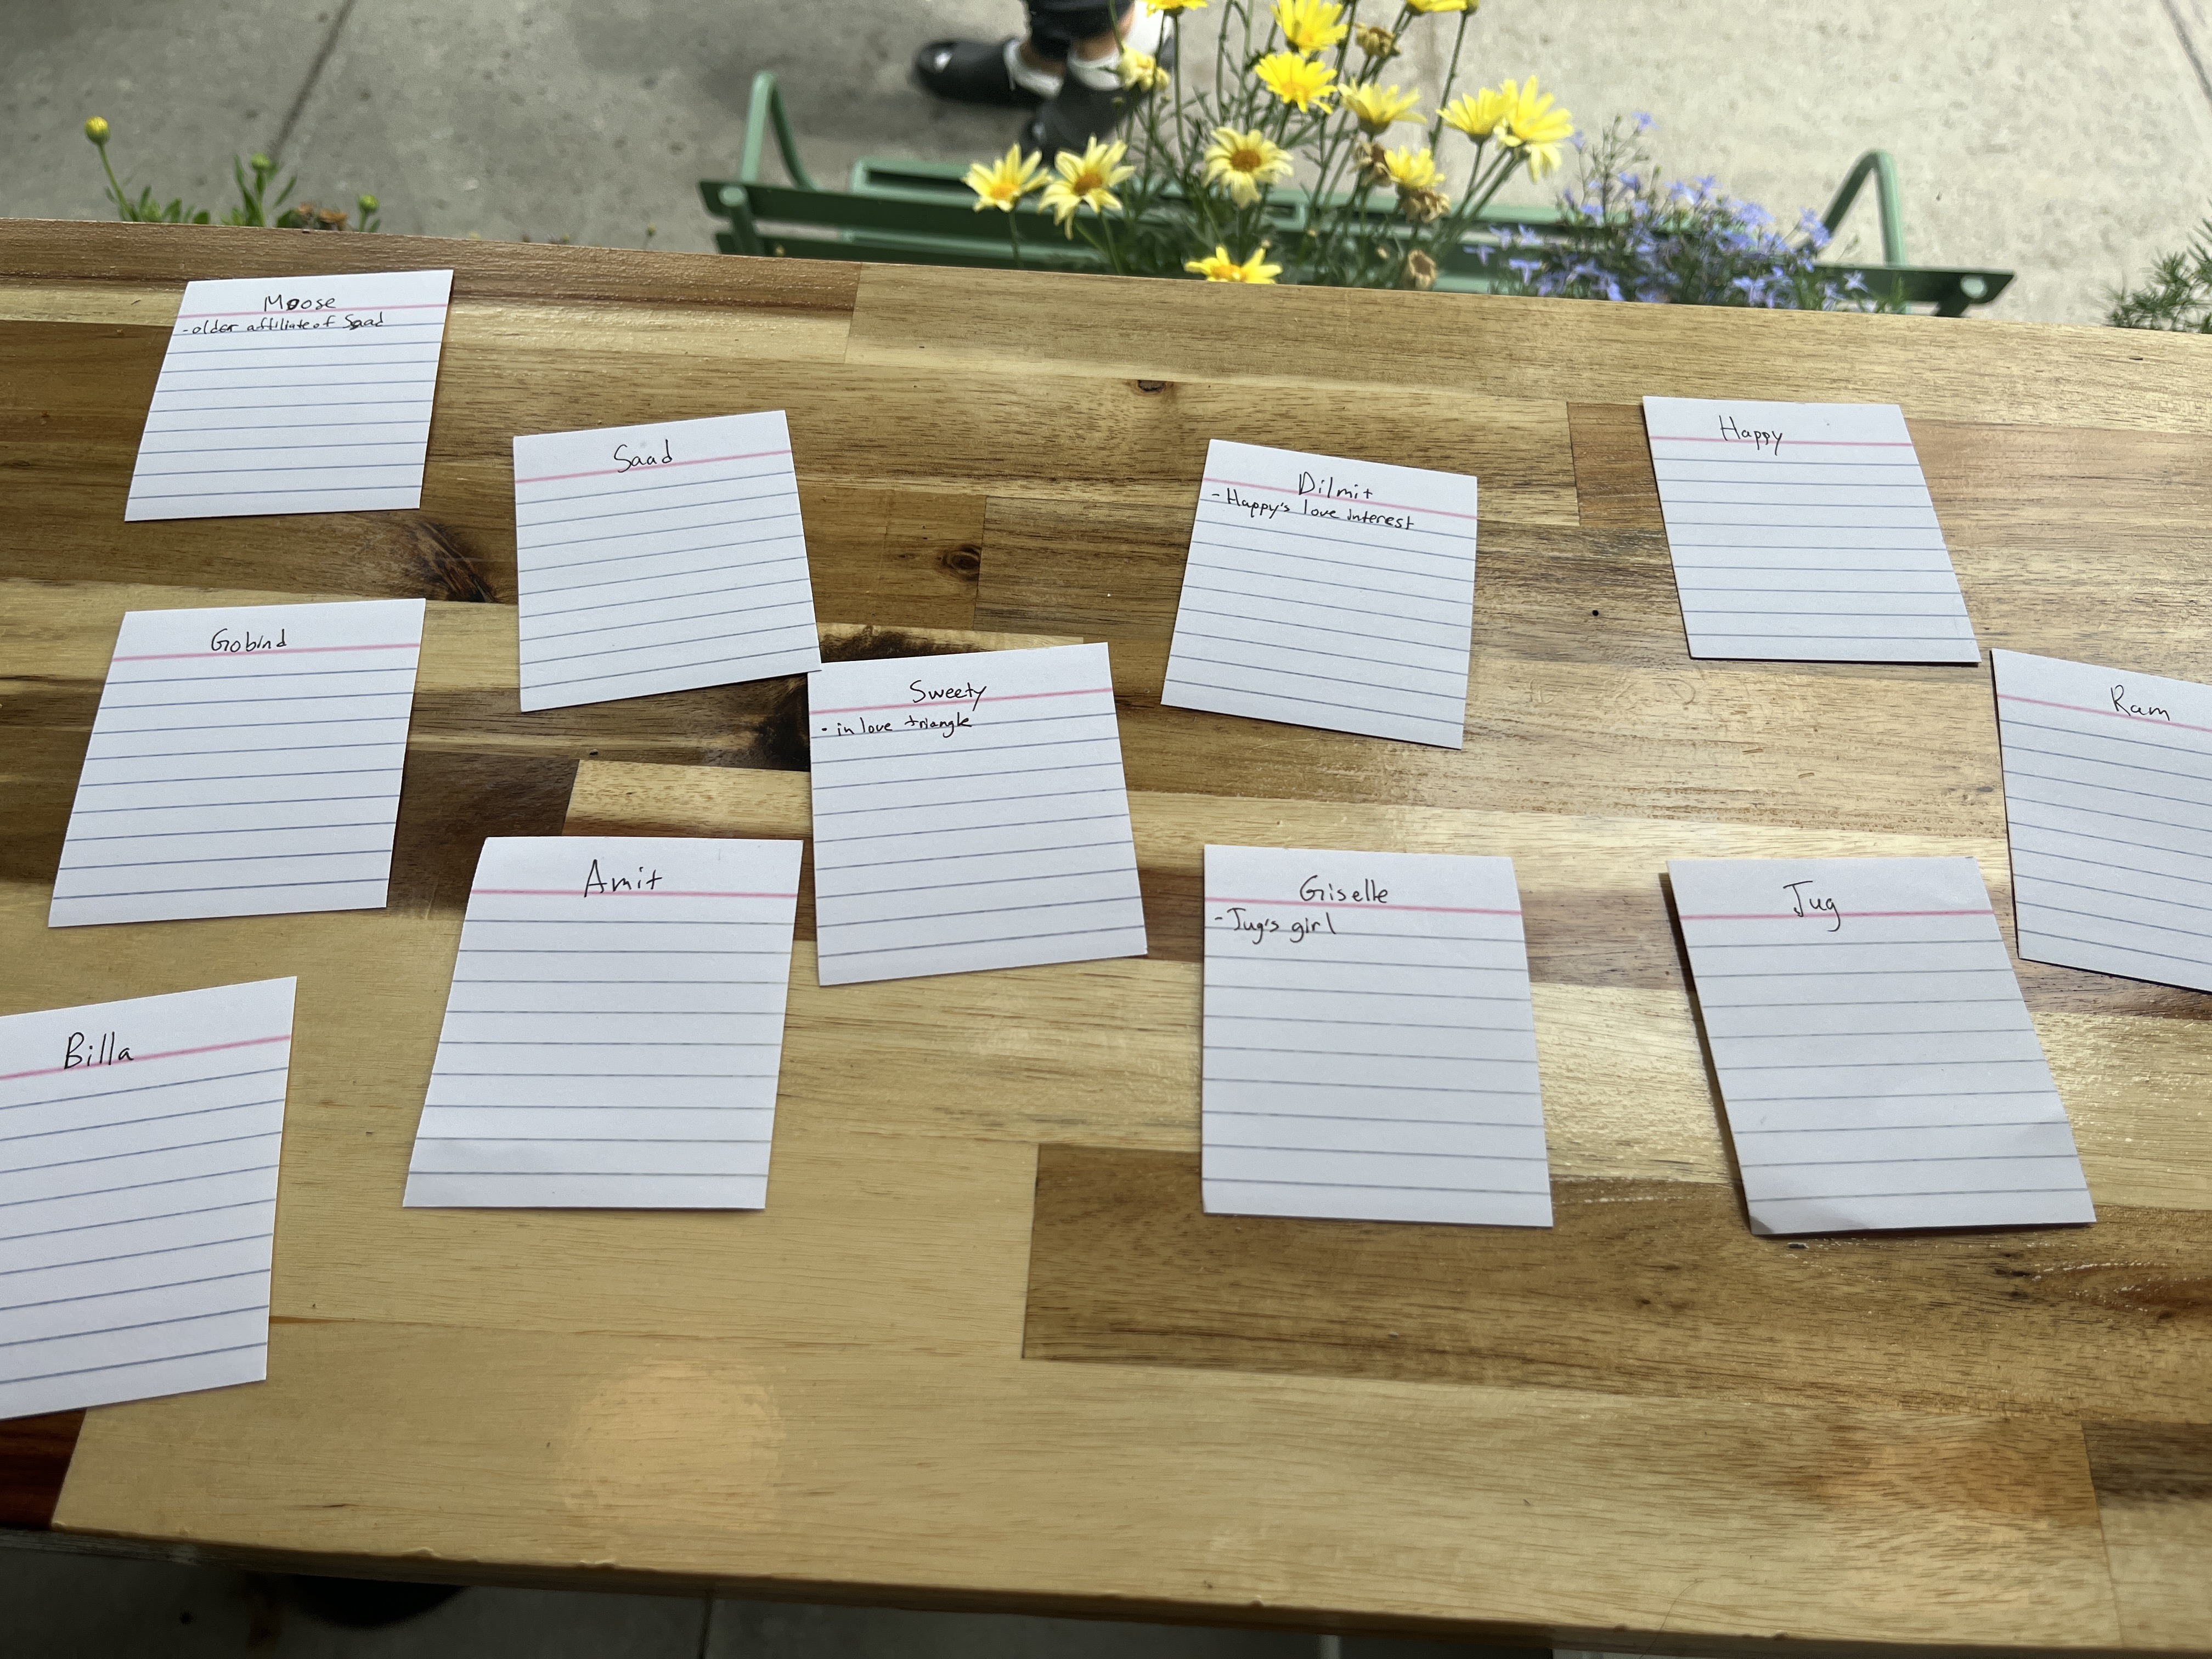 Moose
- older affiliate of Saad
Saad
Dilmit
- Happy's love interest
Happy
Gobind
Sweety
- in love triangle
Ram
Amit
Giselle
- Jug's girl
Jug
Billa